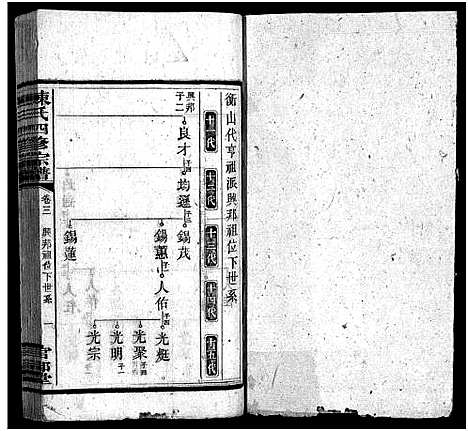 衡山代亨祖派興邦祖位下世系
十一代
十二代
十三代
十四代
十五代
興邦
子二
良才
均選
錫茂
錫蕙
錫蓮
人佑
子四
光庭
光聚
子四
光明
子一
光宗
陳氏四修宗譜
卷三
興邦祖位下世系
一